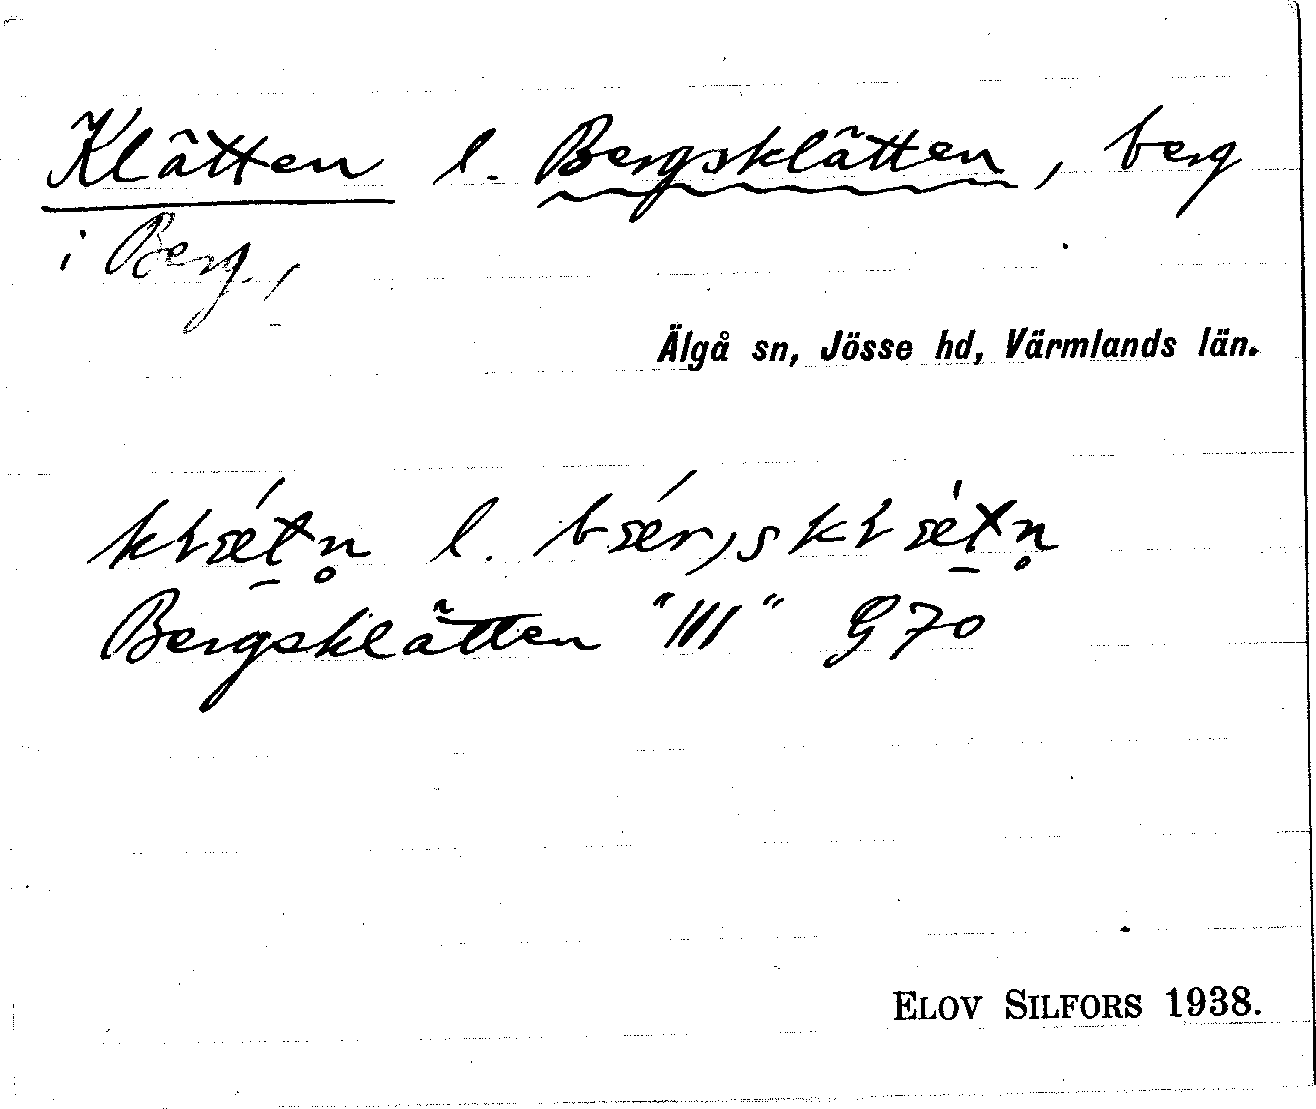 Klätten l. Bergsklätten, berg
i Berg,
Älgå sn, Jösse hd, Värmlands län.
l.
Bergsklätten "III" G70
ELOV SILFORS 1938.